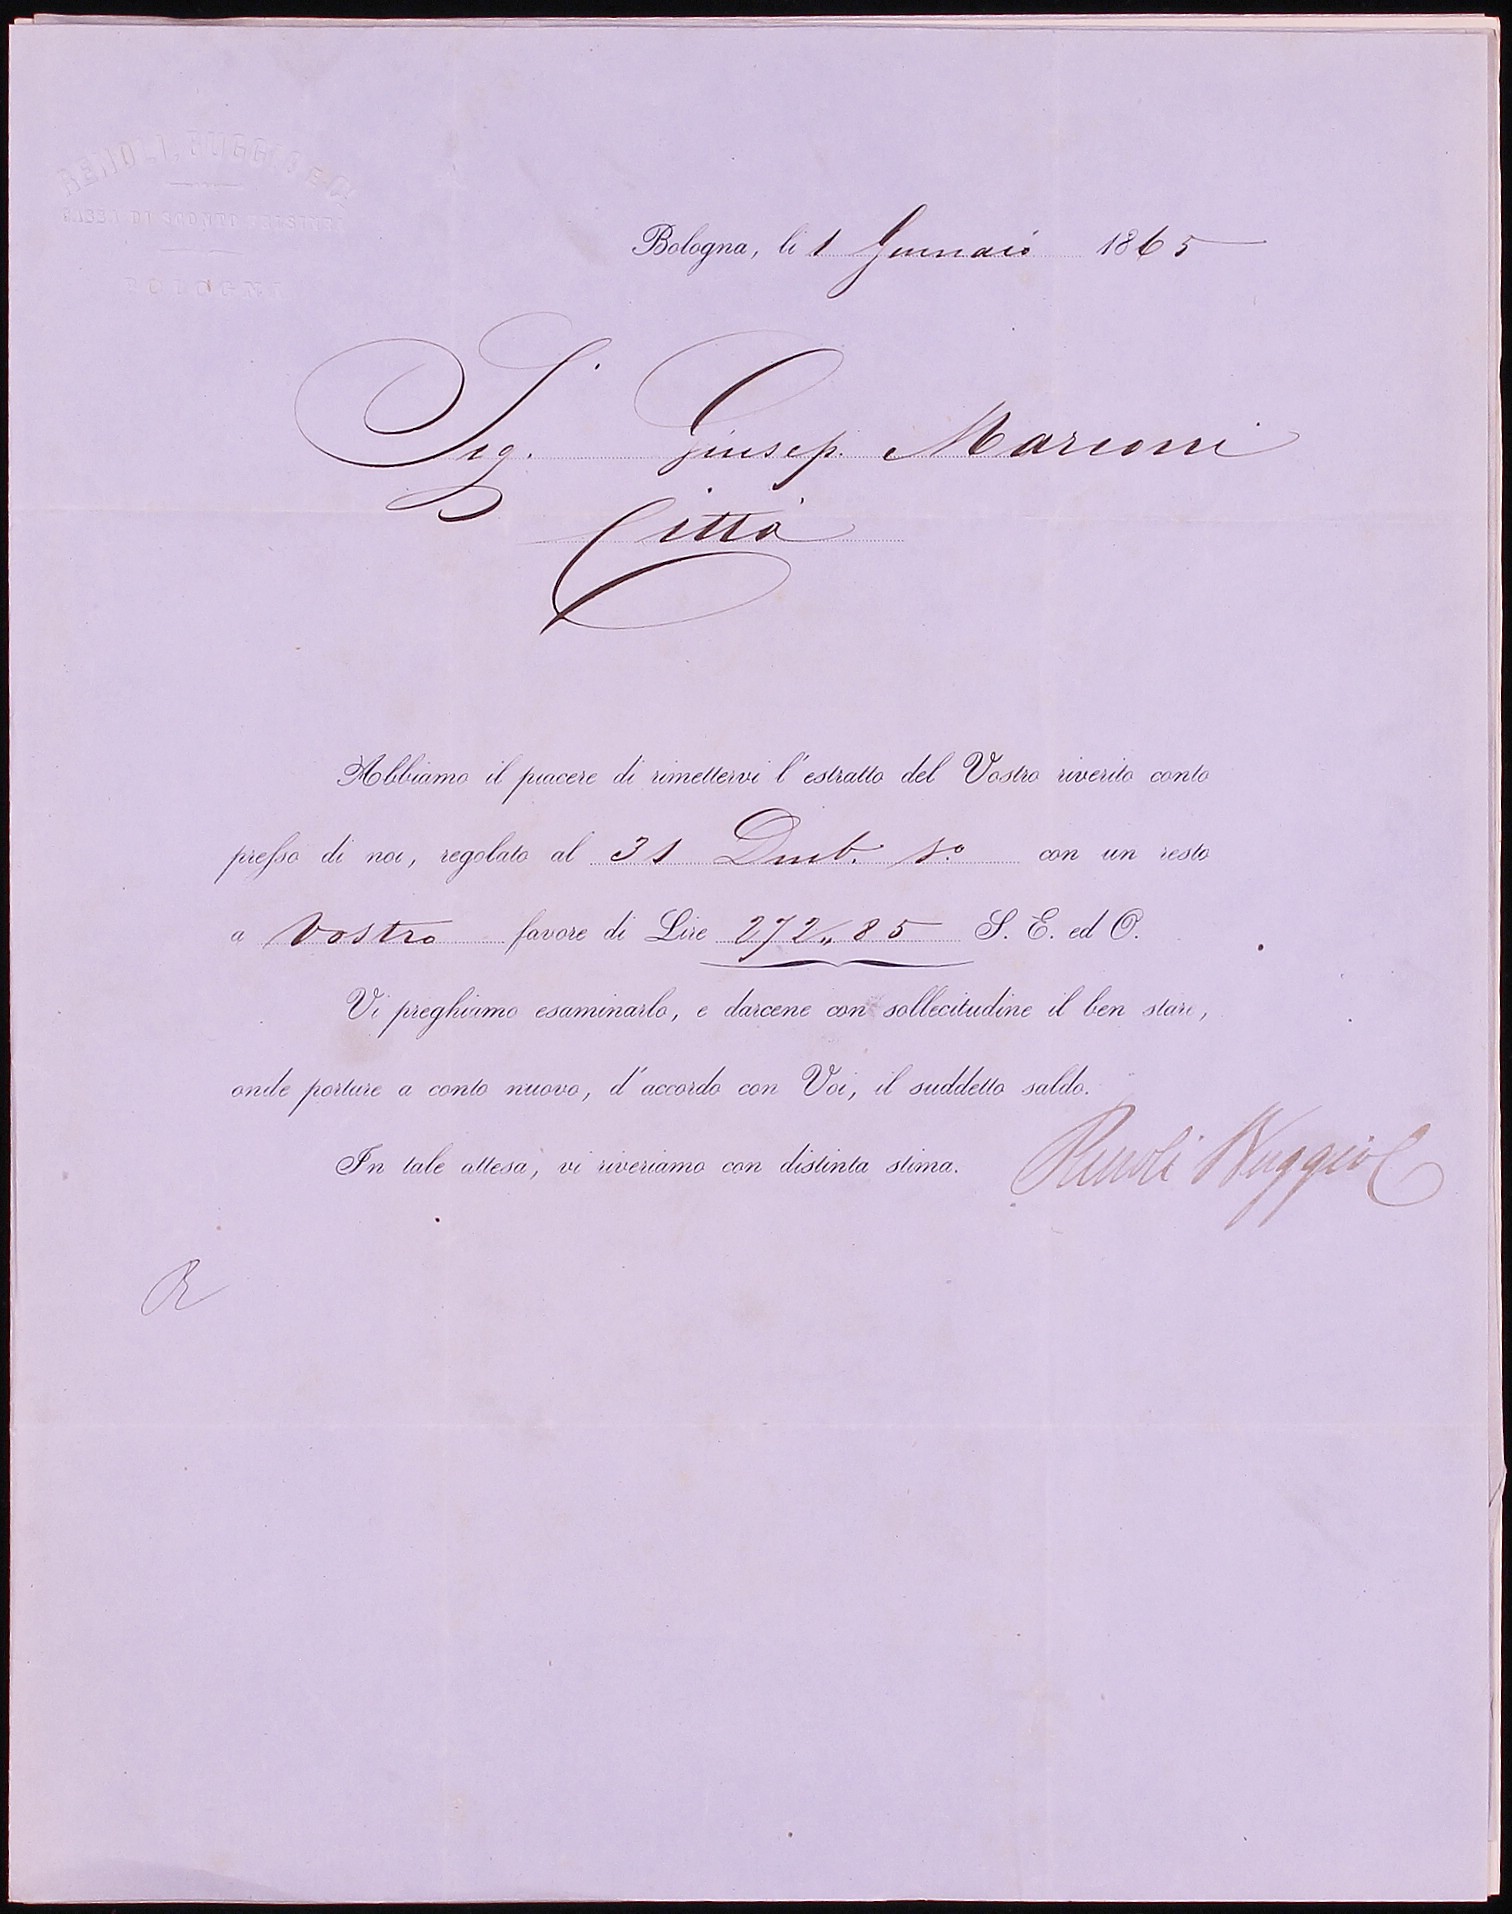 RENOLI, BUGGIO E C.
CASSA DI SCONTO
BOLOGNA
Bologna, li 1 Gennaio 1865
Sig. Giusep. Marconi
Città
Abbiamo il piacere di rimettervi l'estratto del Vostro riverito conto
presso di noi, regolato al 31 Dmb. s.º con un resto
a vostro favore di Lire 272,, 85 S. E. ed O.
Vi preghiamo esaminarlo, e darcene con sollecitudine il ben stare,
onde portare a conto nuovo, d'accordo con Voi, il suddetto saldo.
In tale attesa, vi riveriamo con distinta stima. Renoli Buggio C
R